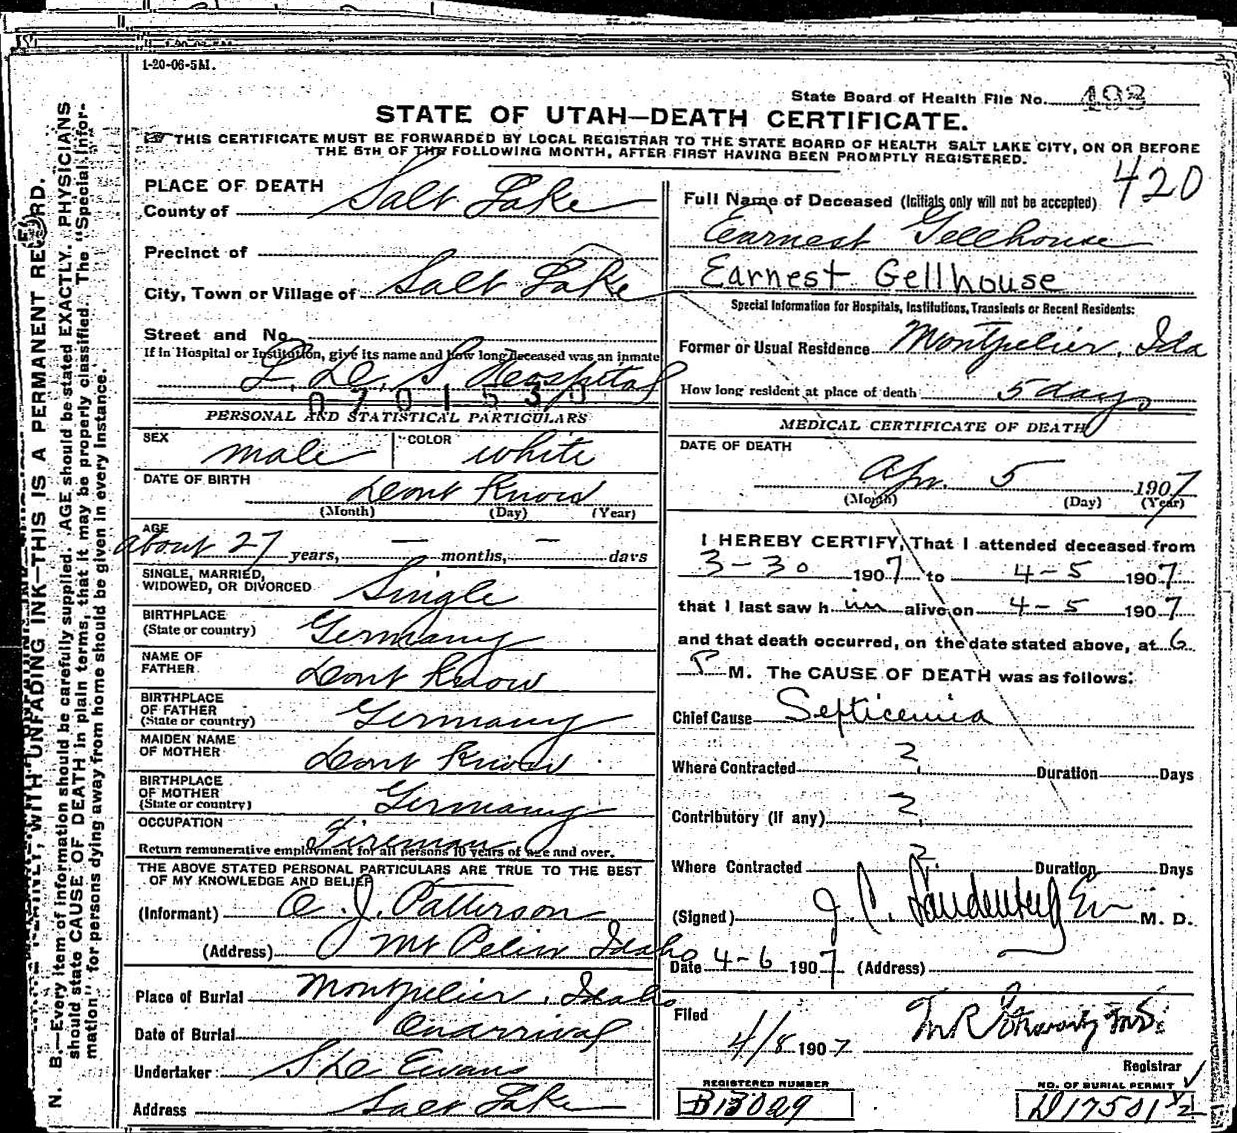 1-20-06-5M.
State Board of Health File No. 493
STATE OF UTAH—DEATH CERTIFICATE.
THIS CERTIFICATE MUST BE FORWARDED BY LOCAL REGISTRAR TO THE STATE BOARD OF HEALTH SALT LAKE CITY, ON OR BEFORE
THE 5TH OF THE FOLLOWING MONTH, AFTER FIRST HAVING BEEN PROMPTLY REGISTERED.
420
PLACE OF DEATH
County of Salt Lake
Precinct of
City, Town or Village of Salt Lake
Street and No.
If in Hospital or Institution, give its name and how long deceased was an inmate
L. D. S Hospital
0701530
PERSONAL AND STATISTICAL PARTICULARS
SEX male COLOR white
DATE OF BIRTH Dont Know
(Month) (Day) (Year)
AGE about 27 years, — months, — days
SINGLE, MARRIED,
WIDOWED, OR DIVORCED Single
BIRTHPLACE
(State or country) Germany
NAME OF
FATHER Dont Know
BIRTHPLACE
OF FATHER
(State or country) Germany
MAIDEN NAME
OF MOTHER Dont Know
BIRTHPLACE
OF MOTHER
(State or country) Germany
OCCUPATION Fireman
Return remunerative employment for all persons 10 years of age and over.
THE ABOVE STATED PERSONAL PARTICULARS ARE TRUE TO THE BEST
OF MY KNOWLEDGE AND BELIEF
(Informant) J. Patterson
(Address) Mt Pelier Idaho
Place of Burial Montpelier, Idaho
Date of Burial On arrival
Undertaker Evans
Address Salt Lake
Full Name of Deceased (Initials only will not be accepted)
Earnest Gellhouse
Earnest Gellhouse
Special Information for Hospitals, Institutions, Transients or Recent Residents:
Former or Usual Residence Montpelier, Ida
How long resident at place of death 5 days
MEDICAL CERTIFICATE OF DEATH
DATE OF DEATH
Apr. 5 1907
(Month) (Day) (Year)
I HEREBY CERTIFY, That I attended deceased from
3-30 1907 to 4-5 1907
that I last saw him alive on 4-5 1907
and that death occurred, on the date stated above, at 6
P M. The CAUSE OF DEATH was as follows:
Chief Cause Septicemia
Where Contracted ? Duration Days
Contributory (If any) ?
Where Contracted ? Duration Days
(Signed) J. C. M. D.
Date 4-6 1907 (Address)
Filed
4/8 1907
Registrar
REGISTERED NUMBER
B13029
NO. OF BURIAL PERMIT
D17501½
N. B.—Every item of information should be carefully supplied. AGE should be stated EXACTLY. PHYSICIANS
should state CAUSE OF DEATH in plain terms, that it may be properly classified. The "Special Infor-
mation" for persons dying away from home should be given in every instance.
WRITE PLAINLY, WITH UNFADING INK—THIS IS A PERMANENT RECORD.